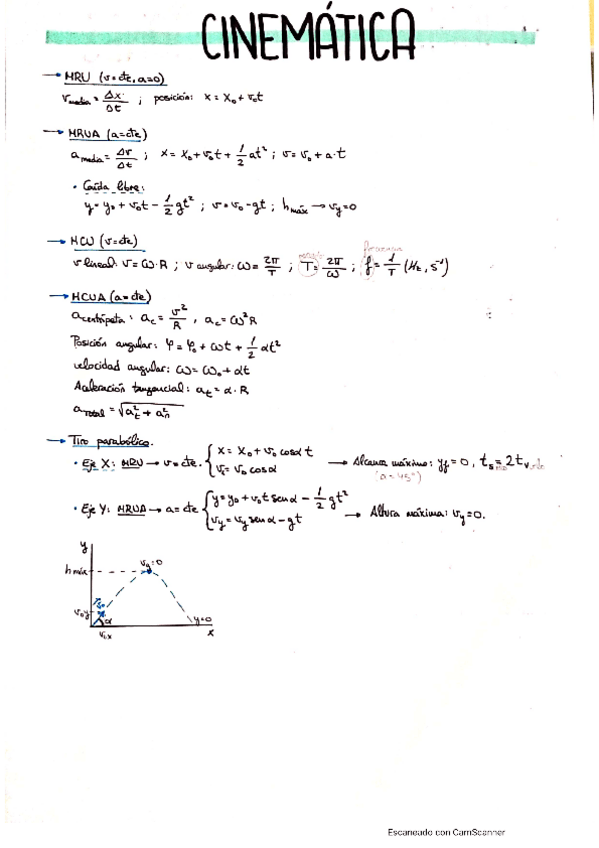 CINEMÁTICA
→ MRU (v=cte, a=0)
v media = Δx/Δt ; posición: x = x₀ + v₀t
→ MRUA (a=cte)
a media = Δv/Δt ; x = x₀ + v₀t + 1/2 at² ; v = v₀ + a·t
• Caída libre:
y = y₀ + v₀t - 1/2 gt² ; v = v₀ - gt ; h máx → vy=0
→ MCU (v=cte)
v lineal: v = ω·R ; v angular: ω = 2π/T ; T = 2π/ω ; f = 1/T (Hz, s⁻¹)
→ MCUA (a=cte)
a centrípeta: a꜀ = v²/R , a꜀ = ω²R
Posición angular: φ = φ₀ + ωt + 1/2 αt²
velocidad angular: ω = ω₀ + αt
Aceleración tangencial: aₜ = α·R
a Total = √(aₜ² + aₙ²)
→ Tiro parabólico.
• Eje X: MRU → v=cte. { x = x₀ + v₀ cosα t
→ Alcance máximo: yf = 0,
(α=45º)
• Eje Y: MRUA → a=cte { y = y₀ + v₀ t senα - 1/2 gt²
vy = vy senα - gt → Altura máxima: vy=0.
y
h máx
vy=0
v₀y
α
y=0
x